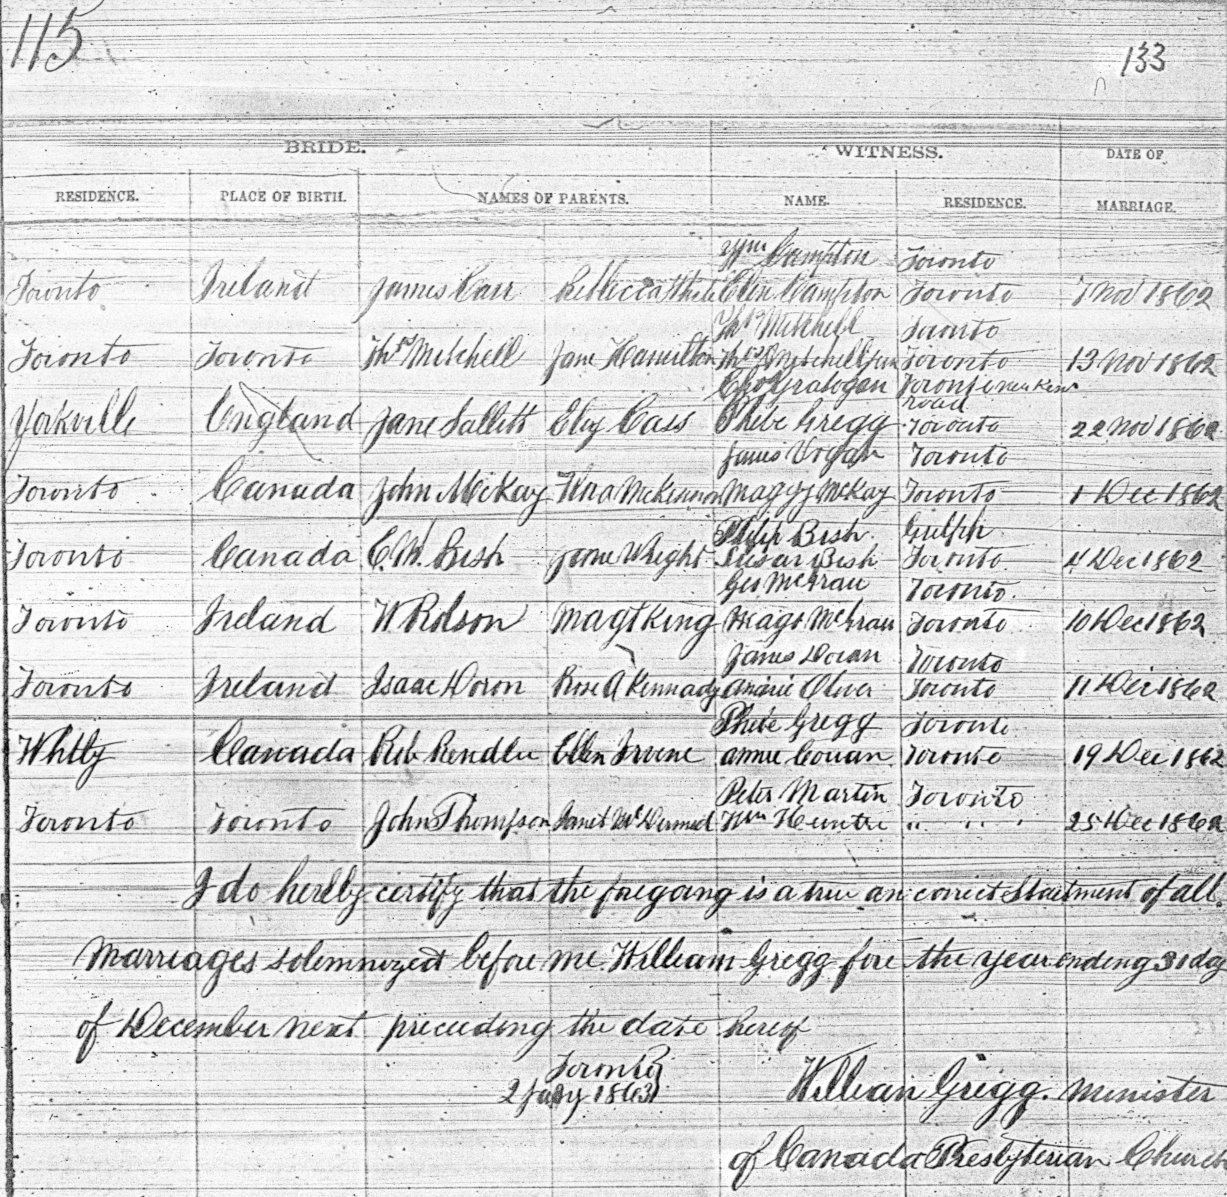 115
133
BRIDE. WITNESS. DATE OF
RESIDENCE. PLACE OF BIRTH. NAMES OF PARENTS. NAME. RESIDENCE. MARRIAGE.
Wm Campton Toronto
Toronto Ireland James Carr Rebecca Ellen Campton Toronto 7 Nov 1862
Thos Mitchell Toronto
Toronto Toronto Thos Mitchell Jane Hamilton Thos Mitchell Jun Toronto 13 Nov 1862
Toronto New Kent
road
Yorkville England Jane Salletts Eliz Cass Phebe Gregg Toronto 22 Nov 1862
James Vogan Toronto
Toronto Canada John McKay Flora McKinnon Maggy McKay Toronto 1 Dec 1862
Philip Bish Guelph
Toronto Canada E. W. Bish Jane Wright Susan Bish Toronto 4 Dec 1862
Geo McGrau Toronto
Toronto Ireland W Robson Magt King McGrau Toronto 10 Dec 1862
James Doran Toronto
Toronto Ireland Isaac Doron Rose A Kennady Annie Oliver Toronto 11 Dec 1862
Phebe Gregg Toronto
Whitby Canada Rob Rendle Ellen Irvine Annie Couan Toronto 19 Dec 1862
Peter Martin Toronto
Toronto Toronto John Thompson Janet McDermed Wm Huntre " " " 25 Dec 1862
I do hereby certify that the foregoing is a true an correct Staetment of all
Marriages solemnized before me William Gregg fore the year ending 31 day
of December next preceeding the date hereof
Toronto
2 Jany 1863
William Gregg. Minister
of Canada Presbyterian Church